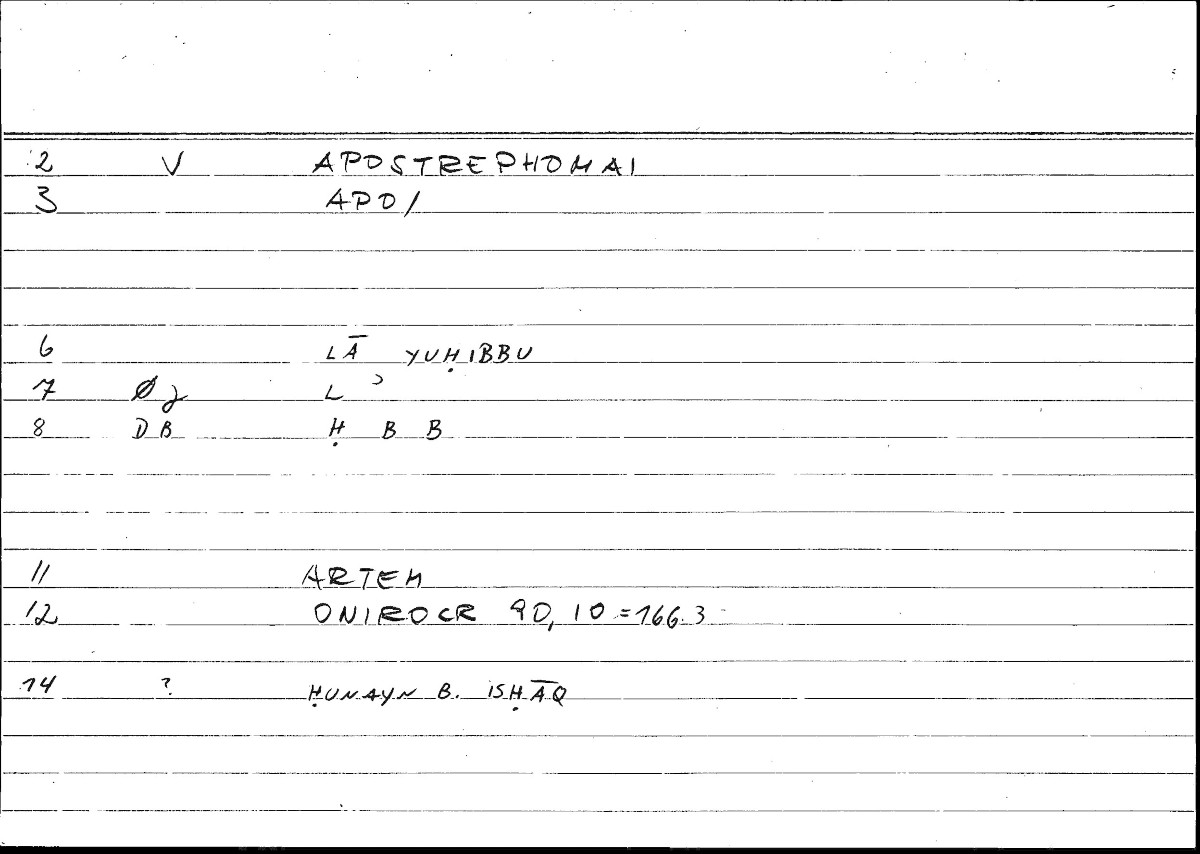 2 V APOSTREPHOMAI
3 APO/
6 LĀ YUḤIBBU
7 Ø L ʾ
8 DB Ḥ B B
11 ARTEM
12 ONIROCR 90, 10 = 166.3
14 ? ḤUNAYN B. ISḤĀQ